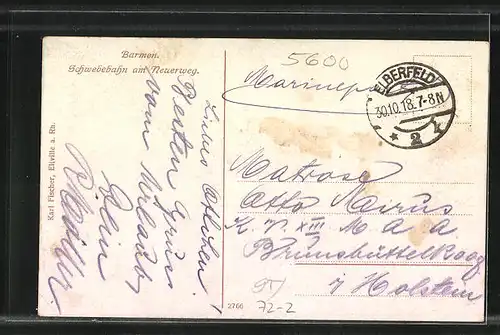 Barmen.
Schwebebahn am Neuerweg.
5600
Marinep
ELBERFELD
30.10.18. 7-8N
* 2 *
Karl Fischer, Eltville a. Rh.
Liebes Ottchen!
Besten Gruss
vom Urlaub
Dein
Matrose
Otto
K. XIII M. A. A
Brunsbüttelkoog
i/ Holstein
2766
72-2